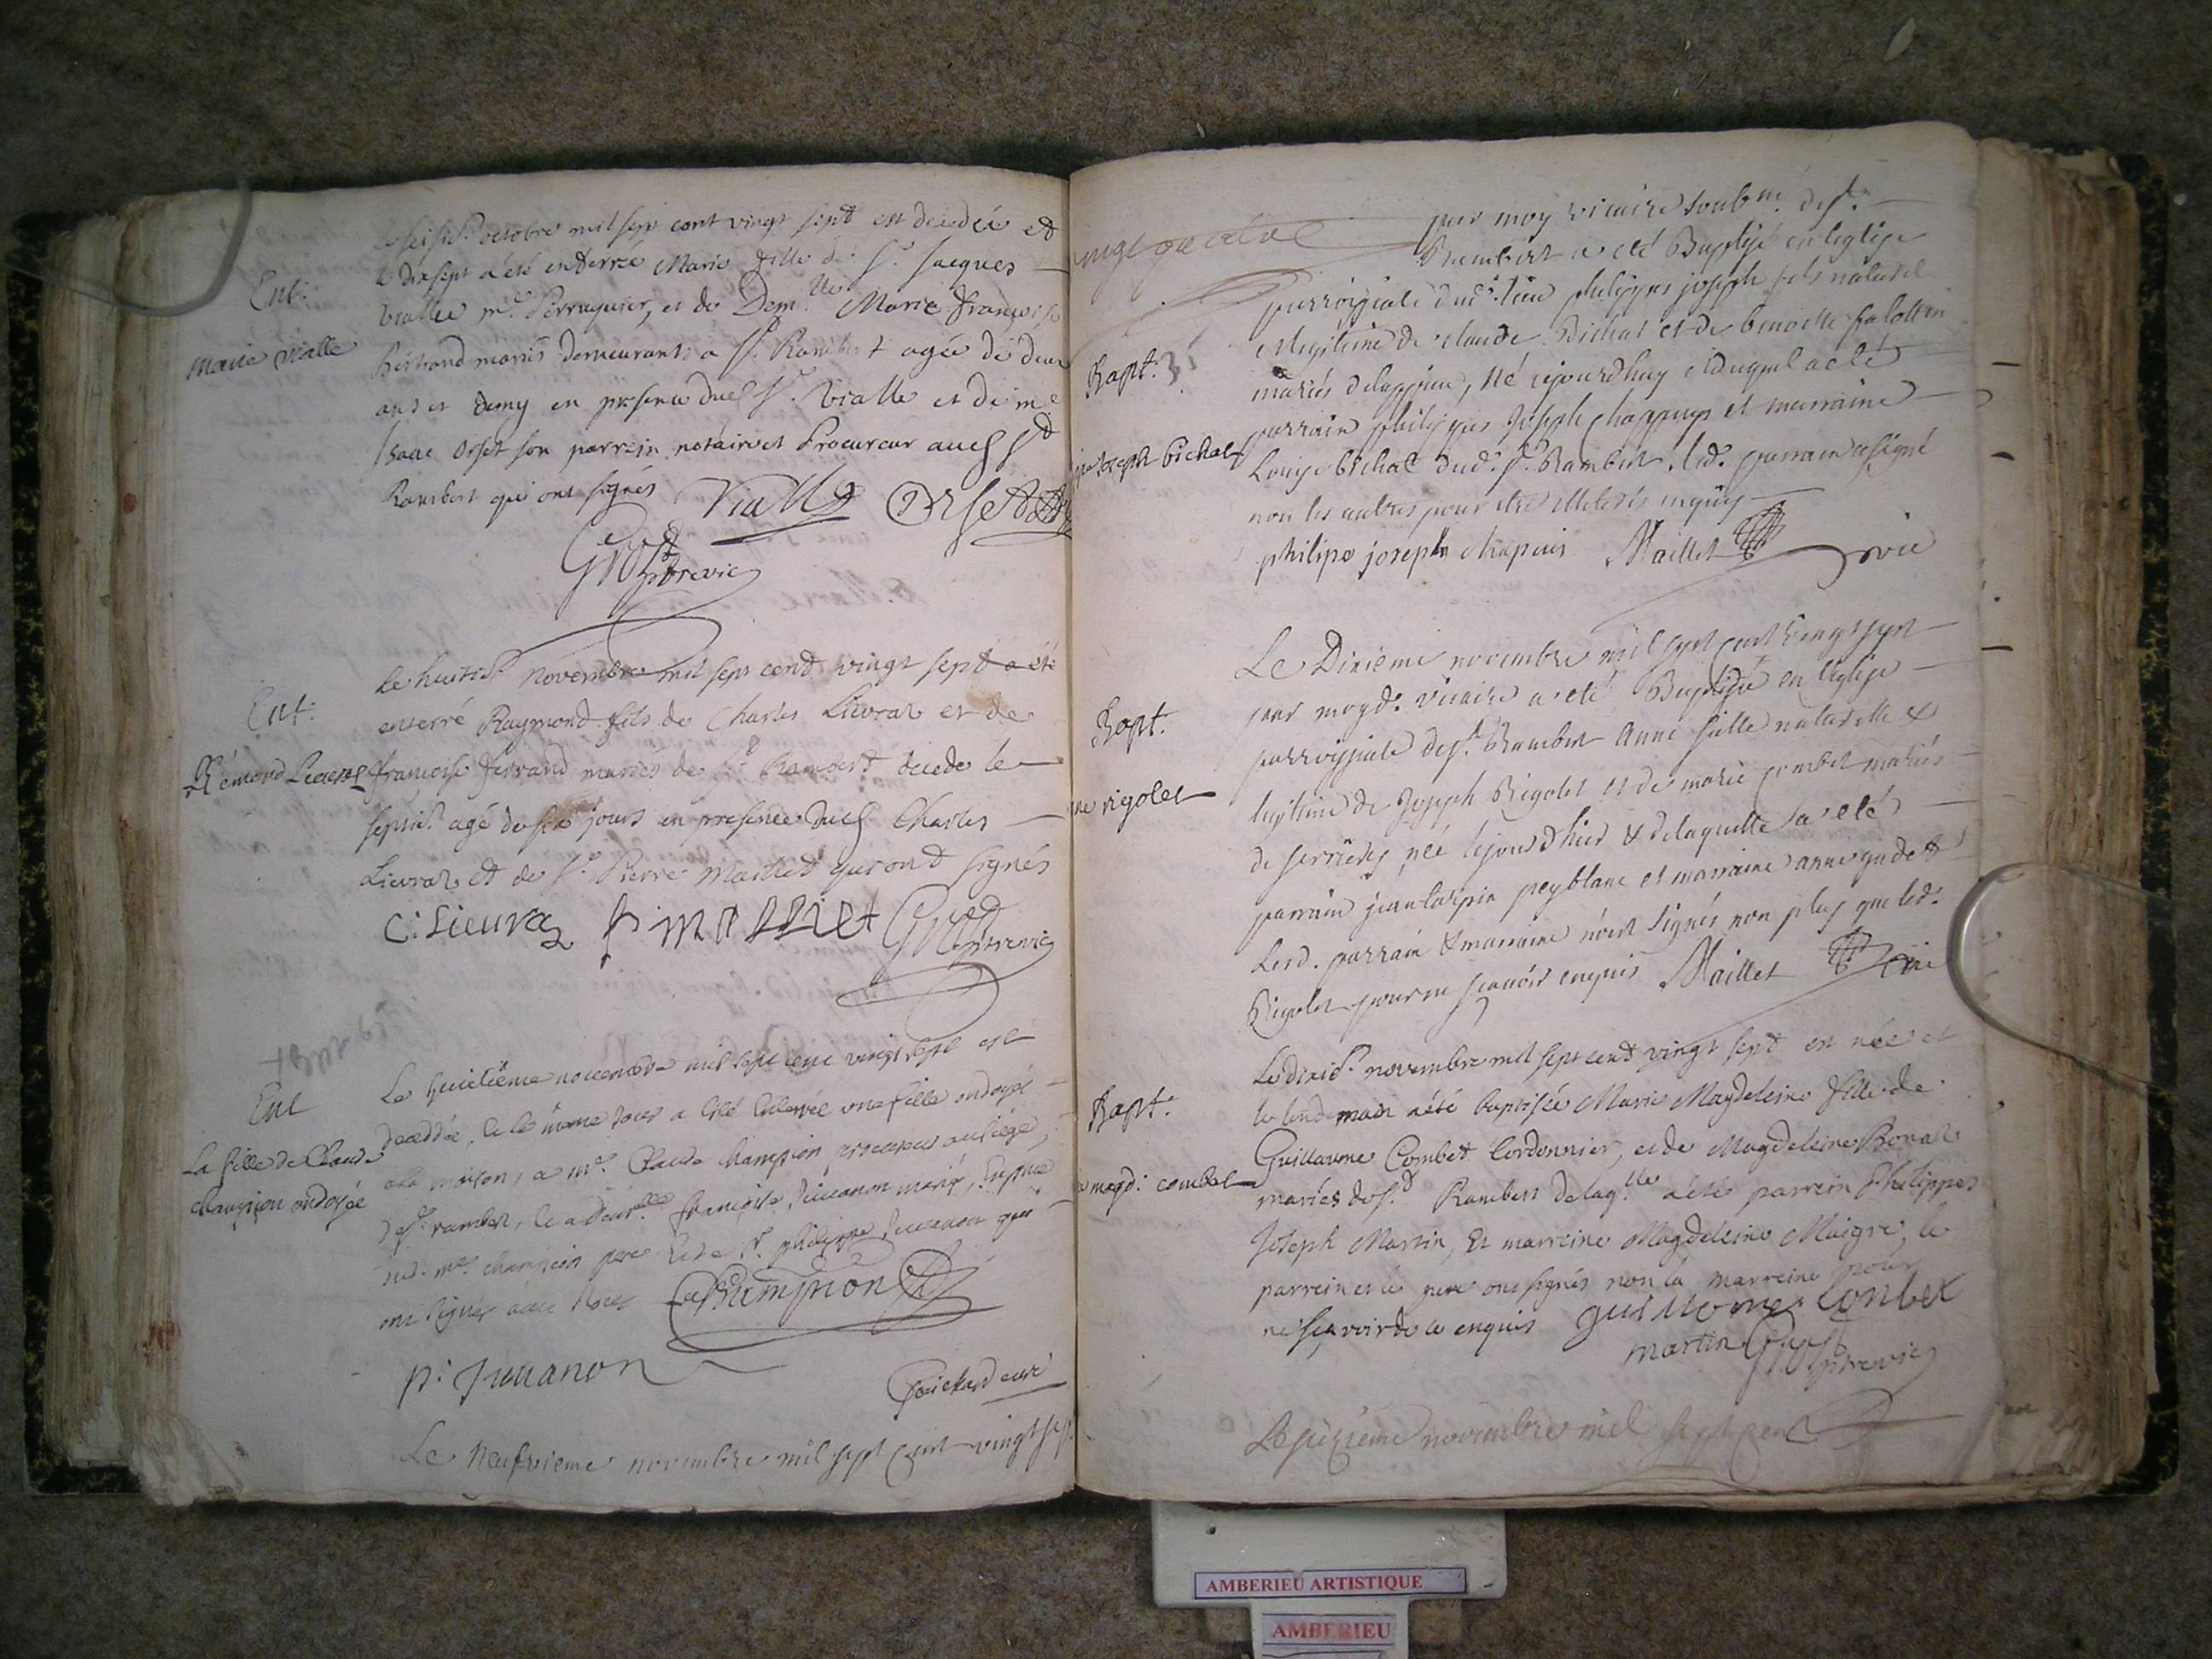 Ent:
Marie Vialle
le seisie. octobre mil sept cent vingt sept est decedée et
le dixsept a été enterrée Marie fille de Sr. Jacques
Vialle me. Perruquier, et de Demlle. Marie françoise
Bertrand mariés demeurants a St. Rambert agée de deux
ans et demy en presence dud Sr. Vialle et de me
Isaac Orset son parrein notaire et Procureur aud St
Rambert qui ont signés Vialle Orset
Grost ptre vic
Ent:
Rémond Lieuraz
le huitie. Novembre mil sept cent vingt sept a été
enterré Raymond fils de Charles Lievraz et de
françoise ferrand mariés de St. Rambert decedé le
septie. agé de six jours en presence dud Charles
Lievraz et de Sr. Pierre Maillet qui ont signés
C: Lieuraz P: Malliet Grost ptre vic
Ent
La fille de Claude
champion ondoyée
Le huictiême novembre mil sept cent vingt sept est
decedée, et le même jour a esté enterrée une fille ondoyée
a la maison, a me. Claude champion procureur au siége
de St. rambert, et a demlle. françoise Juuanon mariés, En pnce
dud. me. champion pere et de Sr. philippe Juuanon qui
ont signes avec Nous Champion
p: Juuanon
Guichard curé
Le Neufvieme novembre mil sept cent vingt sept
par moy vicaire soubné. de St.
Rambert a eté Baptisé en leglise
Bapt. 31
joseph bichat
parroissiale dud. lieu philippes joseph fils naturel
et legitime de claude Bichat et de benoitte falottin
mariés de lappieu, né cejourdhuy et duquel a eté
parrain philippes Joseph chappuys et marraine
Louise bichat dud. St. Rambert. led. parrain a signé
non les autres pour etre illeterés enquis
philipe joseph chapuis Maillet vic
Bapt.
ne rigolet
Le Dixieme novembre mil sept cent vingt sept
par moyd. vicaire a eté Baptisée en leglise
parroissiale de St. Rambert Anne fille naturelle &
legitime de Joseph Rigolet et de marie combet mariés
de serrieres, née le jour d'hier & de laquelle a eté
parrain jean tarpin peyblanc et marraine anne gudet
Lesd. parrain & marraine n'ont signés non plus que led.
Rigolet pour ne scavoir enquis Maillet vic
Bapt.
magd: combet
Le dixie. novembre mil sept cent vingt sept est née et
le lendemain a été baptisée Marie Magdeleine fille de
Guillaume Combet Cordonnier, et de Magdeleine Bonaz
mariés de St. Rambert de laqlle a été parrein Philippes
Joseph Martin, Et marreine Magdeleine Maigre, le
parrein et le pere ont signés non la marreine pour
ne scavoir de ce enquis guillome Conbet
martin Grost ptre vic
Le sizieme novembre mil sept cent
AMBERIEU ARTISTIQUE
AMBERIEU